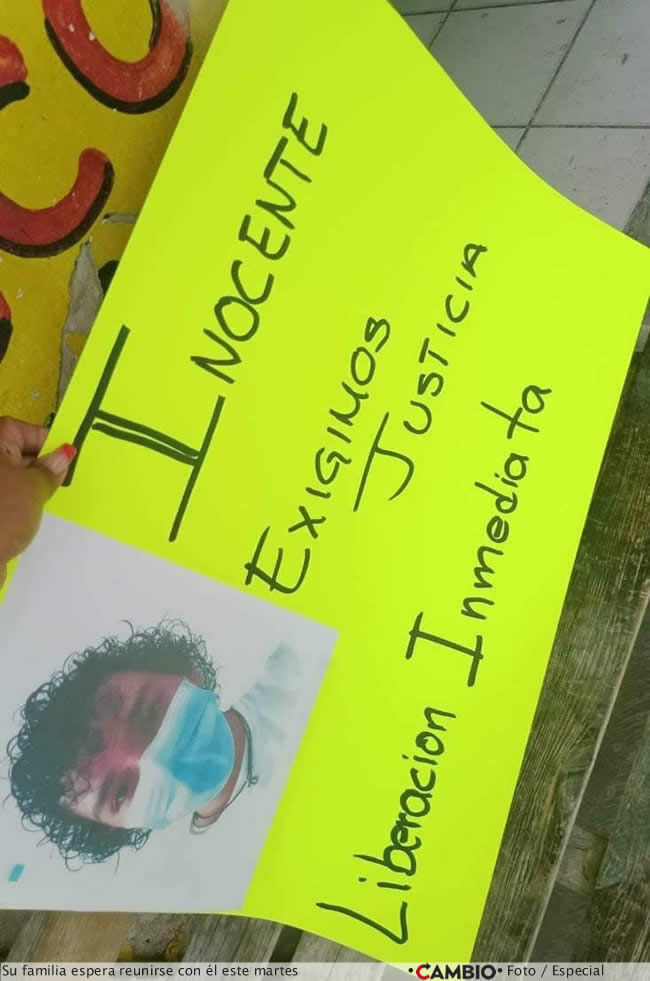 INOCENTE
EXIGIMOS
JUSTICIA
Liberacion Inmediata
Su familia espera reunirse con él este martes
•CAMBIO• Foto / Especial